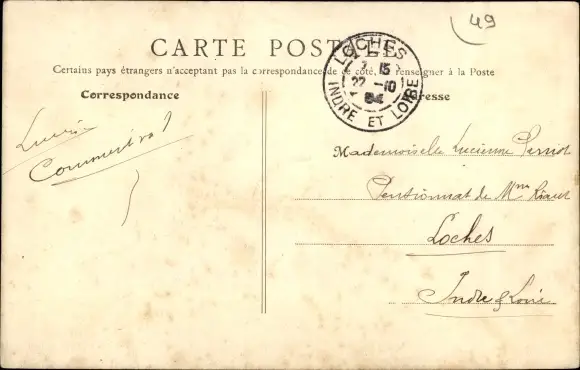 49
CARTE POSTALE
Certains pays étrangers n'acceptant pas la correspondance de ce côté, se renseigner à la Poste
Correspondance
Adresse
LOCHES
7 15
22 -10
04
INDRE ET LOIRE
Lucienne
Comment va ?
Mademoiselle Lucienne Perriot
Pensionnat de Mme
Loches
Indre & Loire